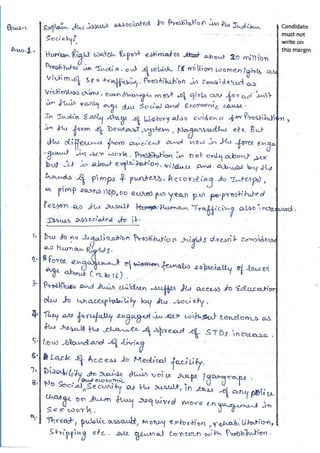 Ques-1 Explain the issues associated to Prostitution in the Indian
Society?
Candidate
must not
write on
this margin
Ans.1. Human Right watch Report estimates that about 20 million
Prostitutes in India. out of which 16 million women/girls are
victim of sex trafficking. Prostitution is considered as
victimless crime, even though most of girls are forced into
in their early age due Social and Economic cause.
In India Early stage of History also evidence for Prostitution,
in the form of Devdasi system, Nagarvadhu etc. But
the difference from ancient and now is the force enga-
-gement in sex work. Prostitution is not only about sex
but it is about exploitation, violence and abuse by the
hands of pimps & punters. According to Interpol,
a pimp earns 1,10,00 euros per year per prostituted
Person as the result Human Trafficing also increased.
Issues associated to it-
1. Due to no legalization Prostitution rights doesn't considered
as Human Rights.
2. Force engagement of women females especially of lower
age about (12 to 16).
3. Prostitues and their children suffer the access to Education
due to unacceptability by the society.
4. They are forcefully engaged in sex without condoms as
the result the chance of spread of STDs increase.
5. Low standard of living
6. Lack of Access to Medical facility.
7. Disability to raise their voice rape/gangrape.
8. No Social and economic Security as the result, in case of any police
charge on them they required more engagement in
Sex work.
9. Threat, public assault, Money extortion, rehabilitation,
Stripping etc. are general concern with Prostitution.